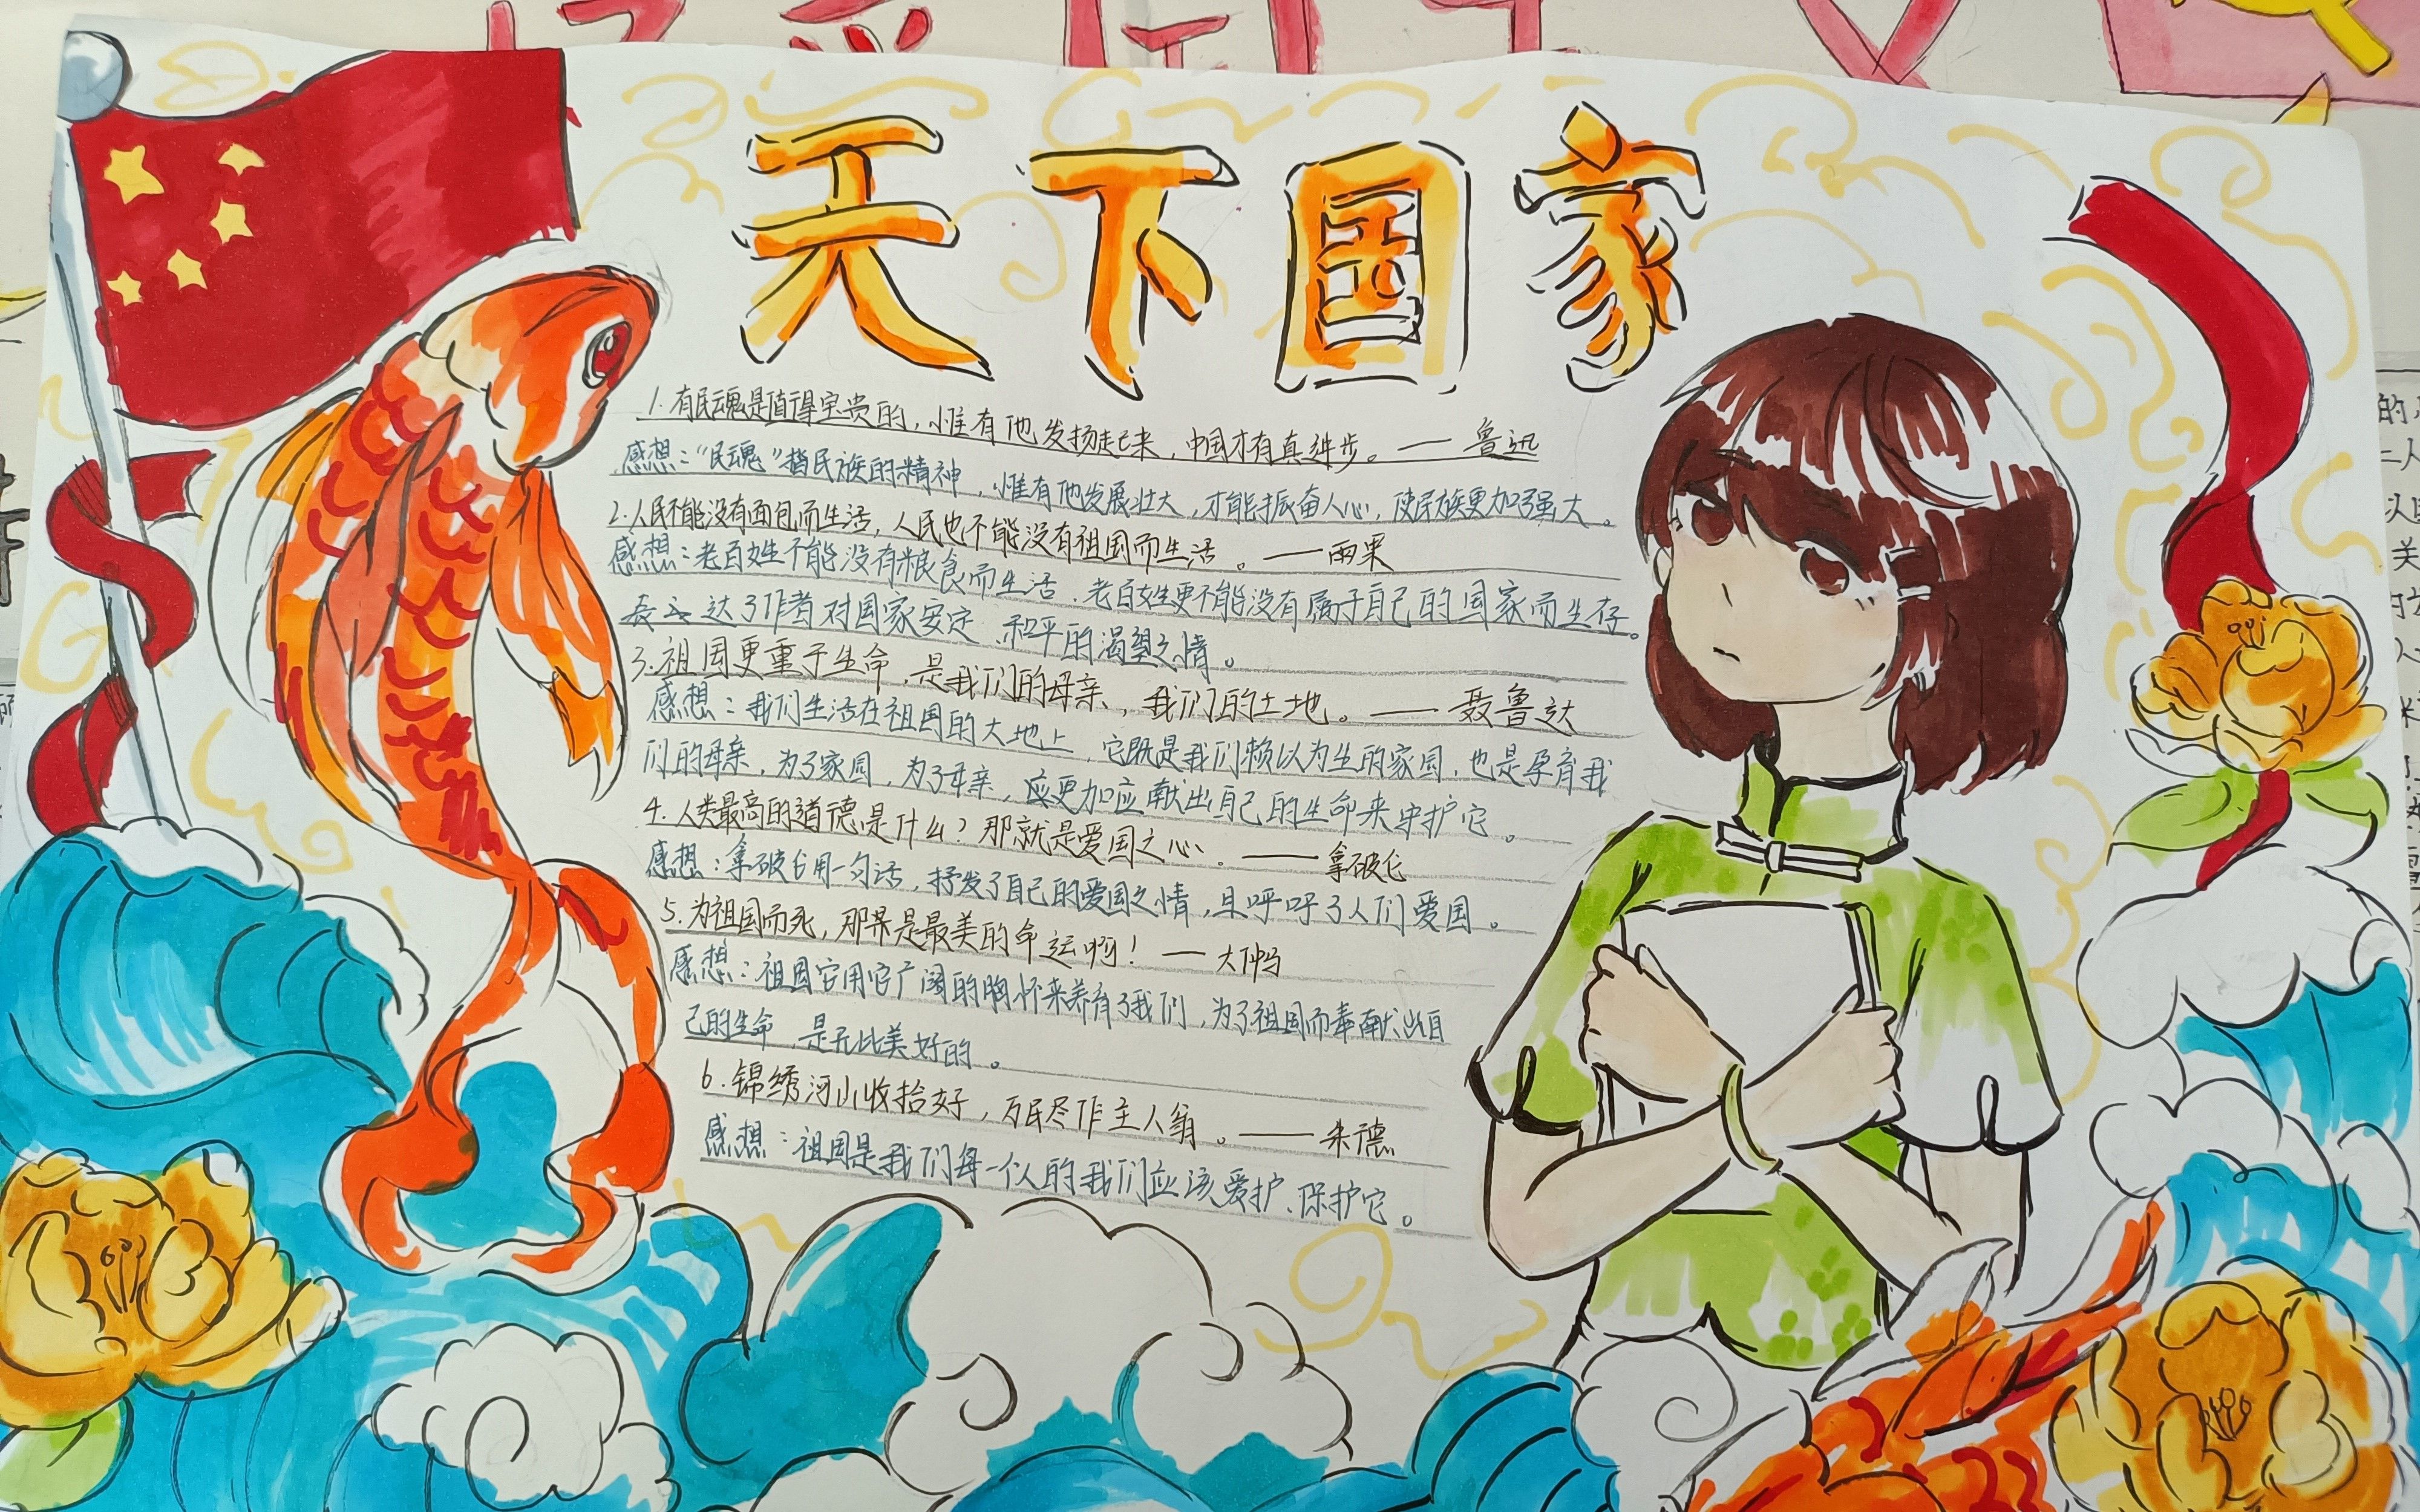 天下国家
1.有民魂是值得宝贵的,惟有他发扬起来,中国才有真进步。——鲁迅
感想:“民魂”指民族的精神,惟有他发展壮大,才能振奋人心,使民族更加强大。
2.人民不能没有面包而生活,人民也不能没有祖国而生活。——雨果
感想:老百姓不能没有粮食而生活,老百姓更不能没有属于自己的国家而生存。
达了作者对国家安定、和平的渴望之情。
3.祖国更重于生命,是我们的母亲,我们的土地。——聂鲁达
感想:我们生活在祖国的大地上,它既是我们赖以为生的家园,也是孕育我
们的母亲,为了家园,为了母亲,应更加应献出自己的生命来守护它。
4.人类最高的道德是什么?那就是爱国之心。——拿破仑
感想:拿破仑用一句话,抒发了自己的爱国之情,且呼呼了人们爱国。
5.为祖国而死,那是最美的命运啊!——大仲马
感想:祖国它用它广阔的胸怀来养育了我们,为了祖国而奉献出自
己的生命,是无比美好的。
6.锦绣河山收拾好,万民尽作主人翁。——朱德
感想:祖国是我们每一个人的我们应该爱护、保护它。